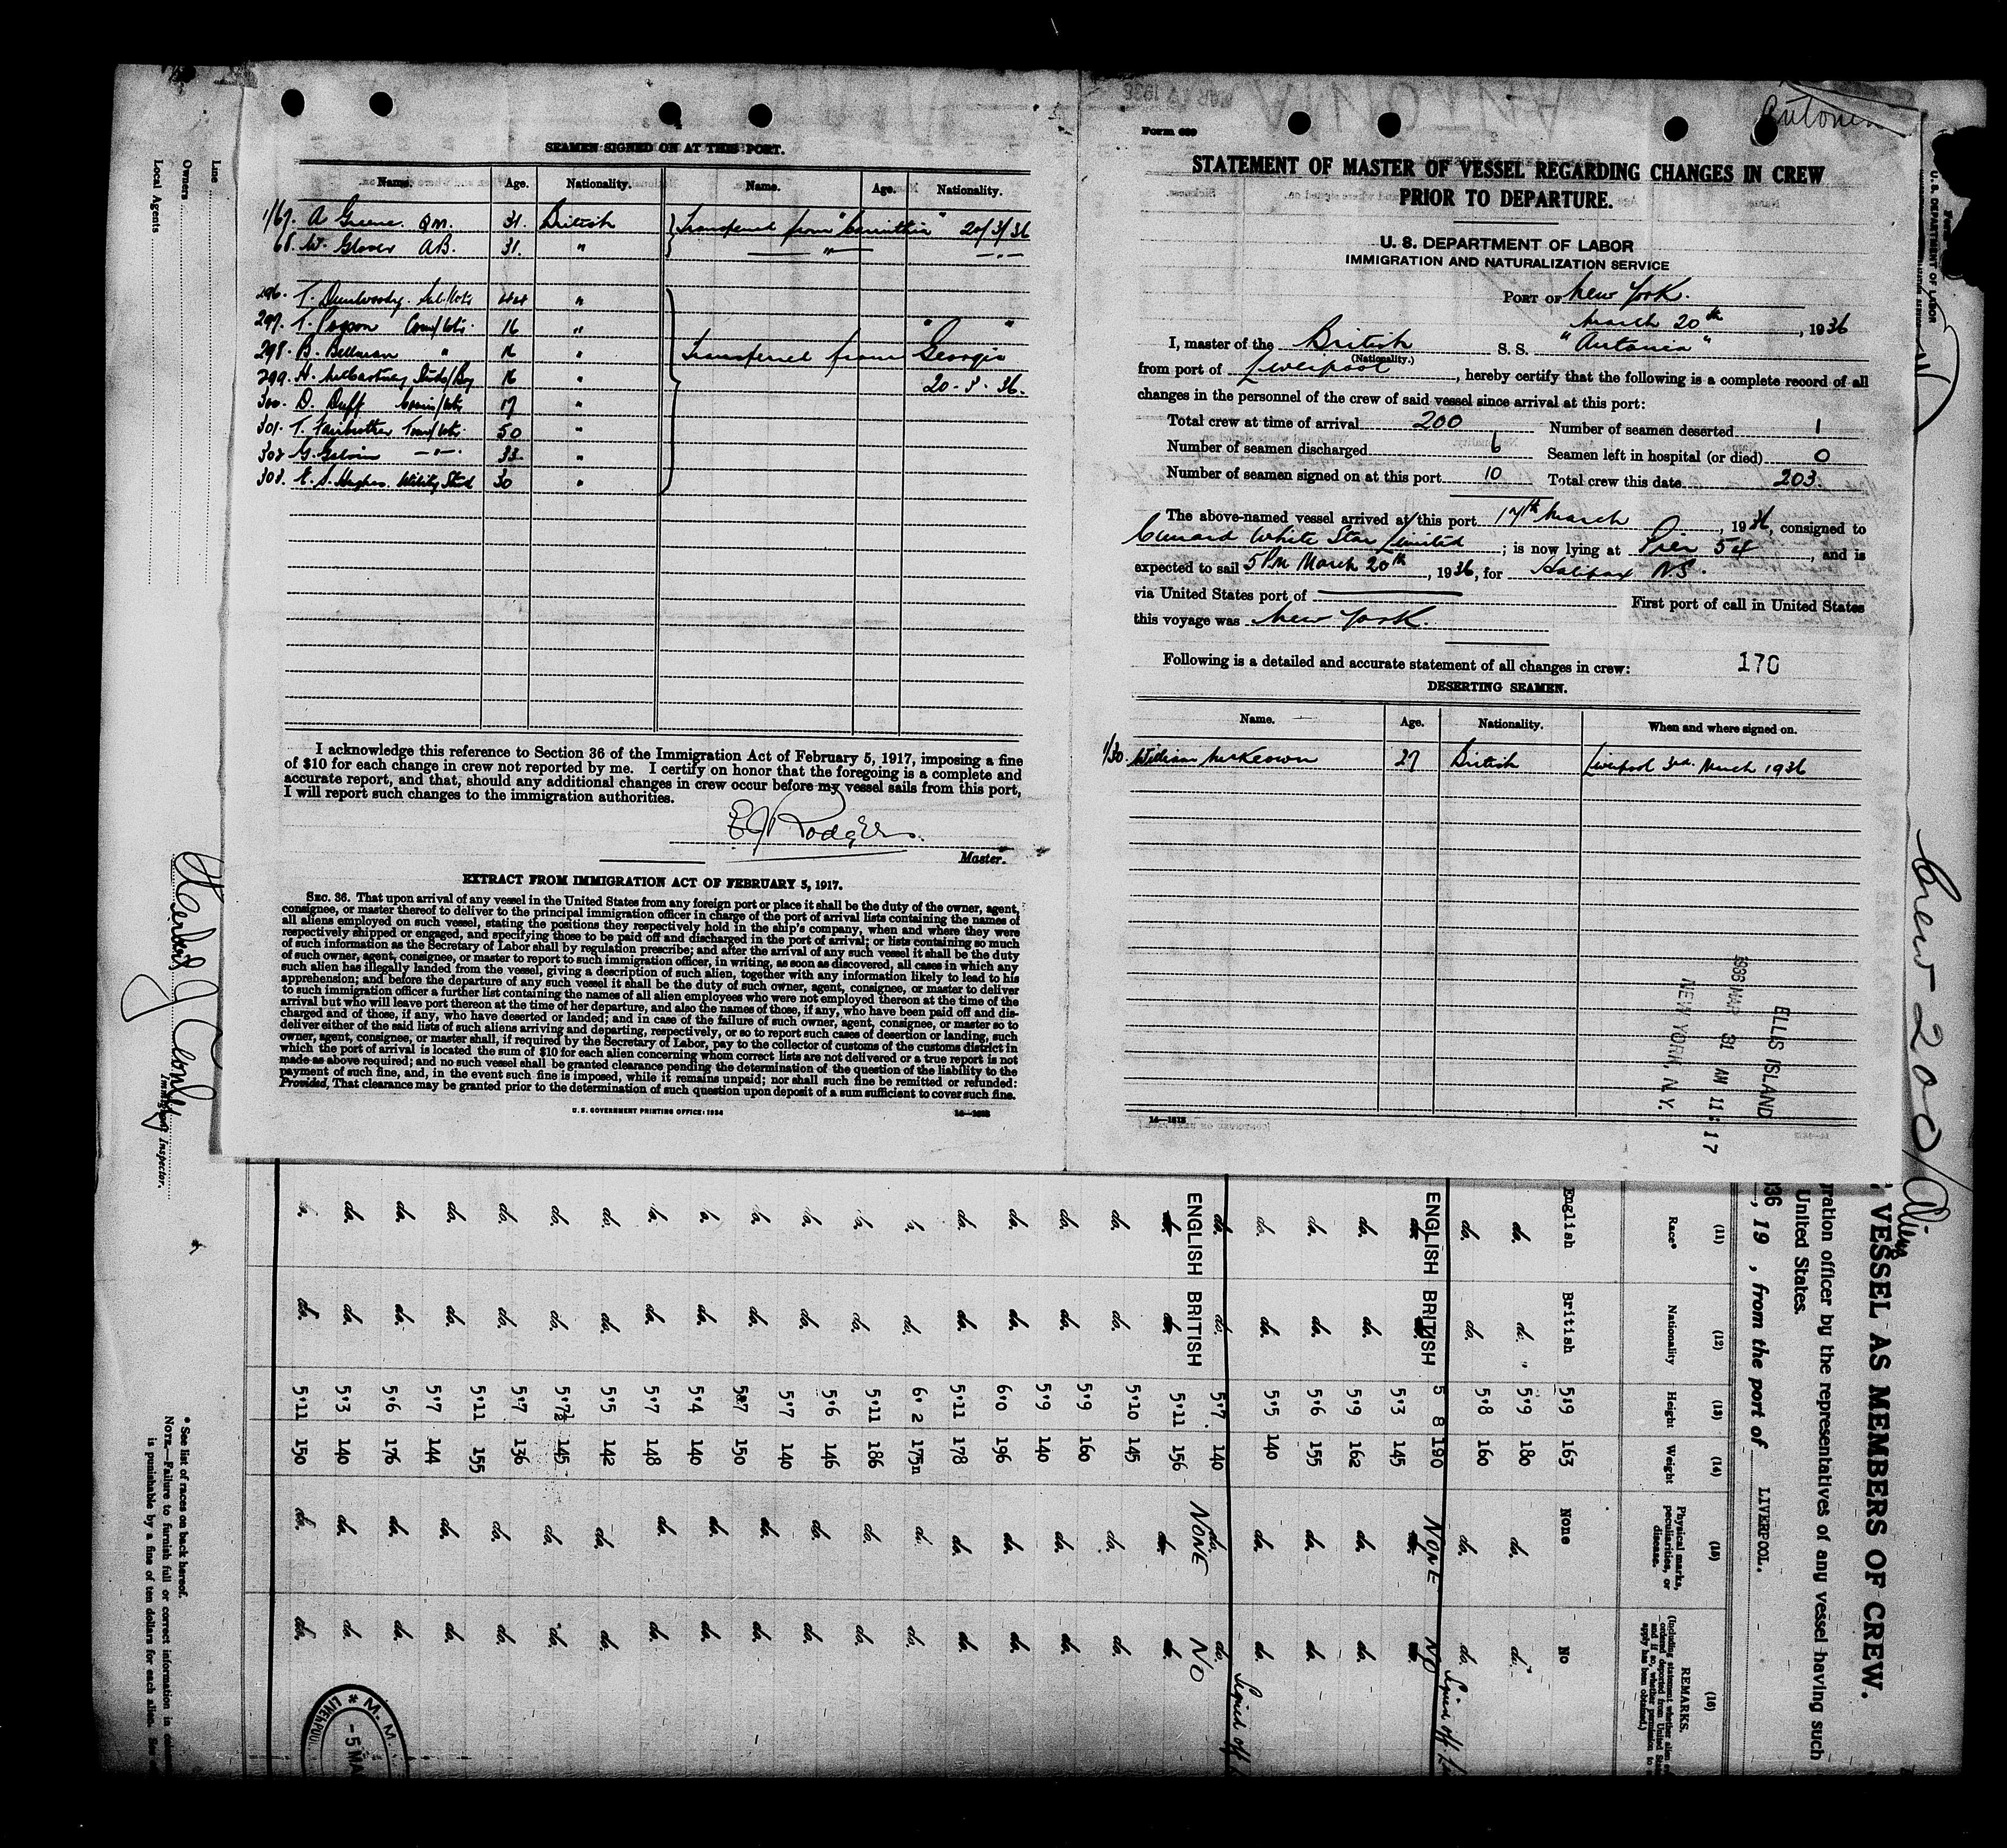 SEAMEN SIGNED ON AT THIS PORT.
Name. Age. Nationality. Name. Age. Nationality.
1/67. A Greene. QM. 31. British Transferred from "Carinthia" 20/3/36
68. W. Glover AB. 31. " — " — — " —
296. T. Dunwoody. 44 "
297. T. Pearson 16 " " "
298. B. Bellman " 16 " Transferred from Georgic
299. H. McCartney 16 " 20-3-36.
300. D. Duff 17 "
301. T. Fairbrother 50 "
302 G. Galvin — " — 33 "
303. E. S. Hughes. Utility Stwd 30 "
I acknowledge this reference to Section 36 of the Immigration Act of February 5, 1917, imposing a fine
of $10 for each change in crew not reported by me. I certify on honor that the foregoing is a complete and
accurate report, and that, should any additional changes in crew occur before my vessel sails from this port,
I will report such changes to the immigration authorities.
Rodgers.
Master.
EXTRACT FROM IMMIGRATION ACT OF FEBRUARY 5, 1917.
SEC. 36. That upon arrival of any vessel in the United States from any foreign port or place it shall be the duty of the owner, agent,
consignee, or master thereof to deliver to the principal immigration officer in charge of the port of arrival lists containing the names of
all aliens employed on such vessel, stating the positions they respectively hold in the ship's company, when and where they were
respectively shipped or engaged, and specifying those to be paid off and discharged in the port of arrival; or lists containing so much
of such information as the Secretary of Labor shall by regulation prescribe; and after the arrival of any such vessel it shall be the duty
of such owner, agent, consignee, or master to report to such immigration officer, in writing, as soon as discovered, all cases in which any
such alien has illegally landed from the vessel, giving a description of such alien, together with any information likely to lead to his
apprehension; and before the departure of any such vessel it shall be the duty of such owner, agent, consignee, or master to deliver
to such immigration officer a further list containing the names of all alien employees who were not employed thereon at the time of the
arrival but who will leave port thereon at the time of her departure, and also the names of those, if any, who have been paid off and dis-
charged and of those, if any, who have deserted or landed; and in case of the failure of such owner, agent, consignee, or master so to
deliver either of the said lists of such aliens arriving and departing, respectively, or so to report such cases of desertion or landing, such
owner, agent, consignee, or master shall, if required by the Secretary of Labor, pay to the collector of customs of the customs district in
which the port of arrival is located the sum of $10 for each alien concerning whom correct lists are not delivered or a true report is not
made as above required; and no such vessel shall be granted clearance pending the determination of the question of the liability to the
payment of such fine, and, in the event such fine is imposed, while it remains unpaid; nor shall such fine be remitted or refunded:
Provided, That clearance may be granted prior to the determination of such question upon deposit of a sum sufficient to cover such fine.
U.S. GOVERNMENT PRINTING OFFICE: 1934
Form 689
Antonia
STATEMENT OF MASTER OF VESSEL REGARDING CHANGES IN CREW
PRIOR TO DEPARTURE.
U. S. DEPARTMENT OF LABOR
IMMIGRATION AND NATURALIZATION SERVICE
PORT OF New York.
March 20th, 1936
I, master of the British S. S. "Antonia"
(Nationality.)
from port of Liverpool, hereby certify that the following is a complete record of all
changes in the personnel of the crew of said vessel since arrival at this port:
Total crew at time of arrival 200 Number of seamen deserted 1
Number of seamen discharged 6 Seamen left in hospital (or died) 0
Number of seamen signed on at this port 10 Total crew this date 203.
The above-named vessel arrived at this port 17th March, 1936, consigned to
Cunard White Star Limited; is now lying at Pier 54, and is
expected to sail 5 PM March 20th, 1936, for Halifax N.S.
via United States port of ——— First port of call in United States
this voyage was New York.
Following is a detailed and accurate statement of all changes in crew: 170
DESERTING SEAMEN.
Name. Age. Nationality. When and where signed on.
1/30. William McKeown 27 British Liverpool 3rd. March 1936
ELLIS ISLAND
1936 MAR 31 AM 11:17
NEW YORK, N.Y.
14—1613
Crew 200/Aliens
U. S. DEPARTMENT OF LABOR
VESSEL AS MEMBERS OF CREW.
gration officer by the representatives of any vessel having such
United States.
36, 19 , from the port of LIVERPOOL.
(11) (12) (13) (14) (15) (16)
Race* Nationality Height Weight Physical marks, peculiarities, or disease. REMARKS.
English British 5'9 163 None No
do. d. 5'9 180 do. d.
do. do. 5'8 160 do. do.
ENGLISH BRITISH 5 8 190 NONE NO Signed off
do. do. 5'3 145 do. do.
do. do. 5'9 162 do. do.
do. do. 5'6 155 do. do.
do. do. 5'5 140 do. do.
do. do. 5'7 140 do. do. Signed off
ENGLISH BRITISH 5'11 156 NONE NO
do. do. 5'10 145 do. do.
do. do. 5'9 160 do. do.
do. do. 5'9 140 do. do.
do. do. 6'0 196 do. do.
do. do. 5'11 178 do. do.
do. do. 6'2 175 d. do.
do. do. 5'11 186 do. do.
do. do. 5'6 146 do. do.
do. do. 5'7 140 do. do.
do. do. 5'7 150 do. do.
do. do. 5'4 140 do. do.
do. do. 5'7 148 do. do.
do. do. 5'5 142 do. do.
do. do. 5'7½ 145 do. do.
do. do. 5'7 136 do. do.
do. do. 5'11 155 do. do.
do. do. 5'7 144 do. do.
do. do. 5'6 176 do. do.
do. do. 5'3 140 do. do.
do. do. 5'11 150 do. do.
Line
Owners
Local Agents
Immigrant Inspector.
* See list of races on back hereof.
NOTE—Failure to furnish full or correct information in
is punishable by a fine of ten dollars for each alien. See
M. M.
LIVERPOOL
-5 MA